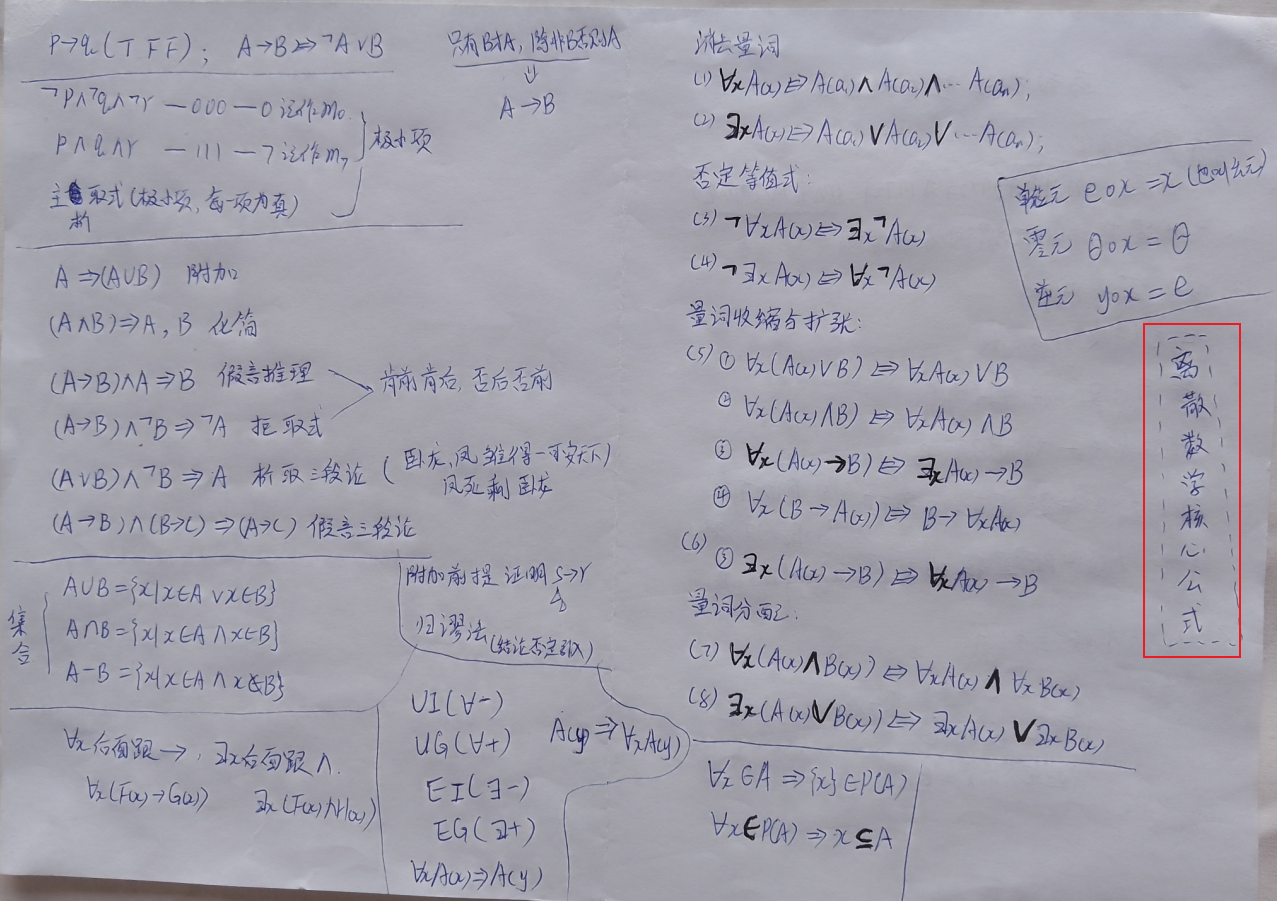 P→q (T F F); A→B⇔¬A∨B
只有B才A, 除非B否则A
⇓
A→B
¬P∧¬q∧¬r — 000 — 0 记作m₀
P∧q∧r — 111 — 7 记作m₇
极小项
主析取式(极小项, 每一项为真)
A⇒(A∪B) 附加
(A∧B)⇒A, B 化简
(A→B)∧A⇒B 假言推理
(A→B)∧¬B⇒¬A 拒取式
肯前肯后, 否后否前
(A∨B)∧¬B⇒A 析取三段论
(卧龙, 凤雏得一可安天下)
凤死剩卧龙
(A→B)∧(B→C)⇒(A→C) 假言三段论
集合
A∪B={x|x∈A∨x∈B}
A∩B={x|x∈A∧x∈B}
A-B={x|x∈A∧x∉B}
附加前提证明 S→r
归谬法(结论否定引入)
∀x后面跟→, ∃x后面跟∧.
∀x(F(x)→G(x)) ∃x(F(x)∧H(x))
UI(∀-)
UG(∀+) A(y)⇒∀xA(y)
EI(∃-)
EG(∃+)
∀xA(x)⇒A(y)
消去量词
(1) ∀xA(x)⇔A(a₁)∧A(a₂)∧…A(aₙ);
(2) ∃xA(x)⇔A(a₁)∨A(a₂)∨…A(aₙ);
否定等值式:
(3) ¬∀xA(x)⇔∃x¬A(x)
(4) ¬∃xA(x)⇔∀x¬A(x)
量词收缩与扩张:
(5) ① ∀x(A(x)∨B)⇔∀xA(x)∨B
② ∀x(A(x)∧B)⇔∀xA(x)∧B
③ ∀x(A(x)→B)⇔∃xA(x)→B
④ ∀x(B→A(x))⇔B→∀xA(x)
(6) ⑤ ∃x(A(x)→B)⇔∀xA(x)→B
量词分配:
(7) ∀x(A(x)∧B(x))⇔∀xA(x)∧∀xB(x)
(8) ∃x(A(x)∨B(x))⇔∃xA(x)∨∃xB(x)
∀x∈A⇒{x}∈P(A)
∀x∈P(A)⇒x⊆A
单位元 e∘x=x(也叫幺元)
零元 θ∘x=θ
逆元 y∘x=e
离散数学核心公式